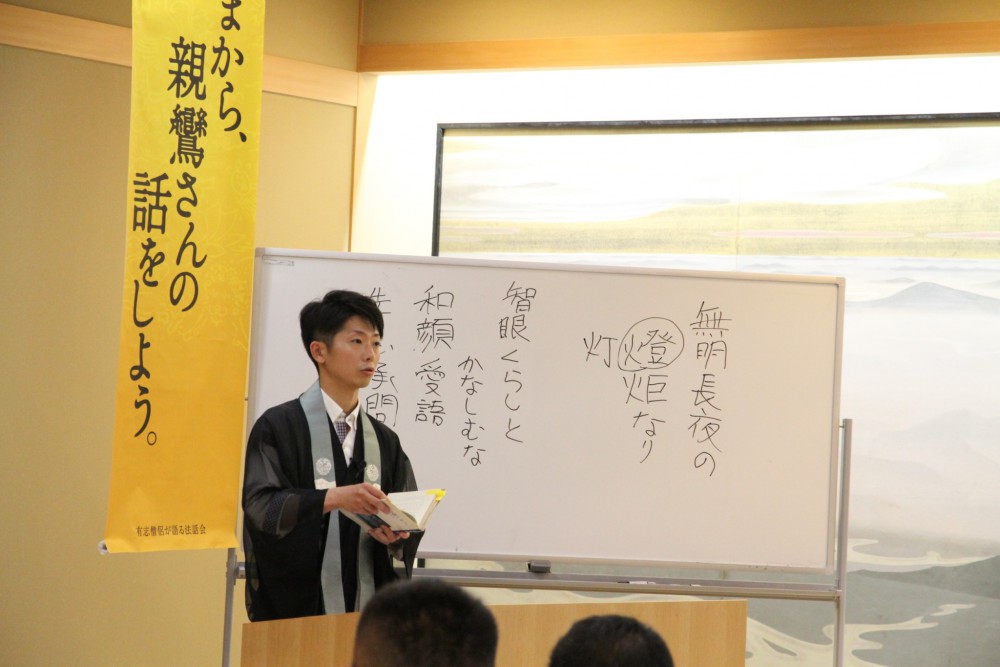 まから、
親鸞さんの
話をしよう。
有志僧侶が語る法話会
無明長夜の
燈炬なり
灯
智眼くらしと
かなしむな
和顔愛語
先 承問